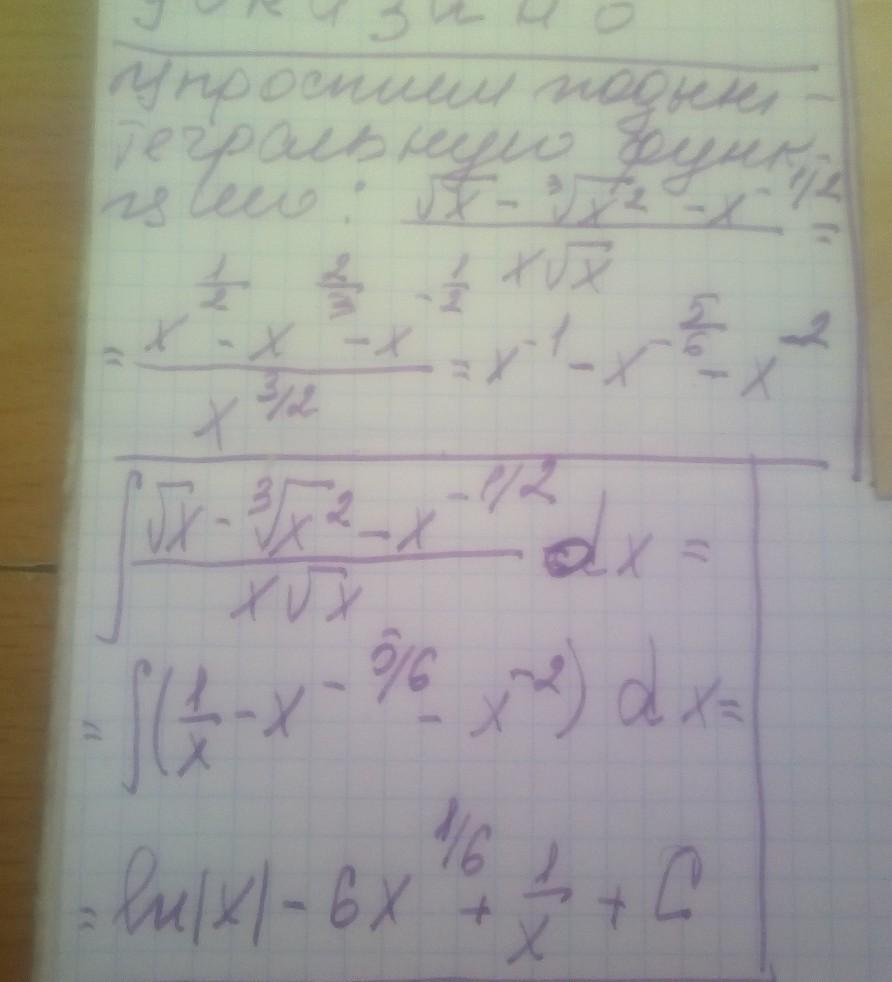 Упростим подын-
тегральную функ-
цию: (√x - ³√x² - x^(-1/2))/(x√x) =
= (x^(1/2) - x^(2/3) - x^(-1/2))/(x^(3/2)) = x^(-1) - x^(-5/6) - x^(-2)
∫ (√x - ³√x² - x^(-1/2))/(x√x) dx =
= ∫(1/x - x^(-5/6) - x^(-2)) dx =
= ln|x| - 6x^(1/6) + 1/x + C